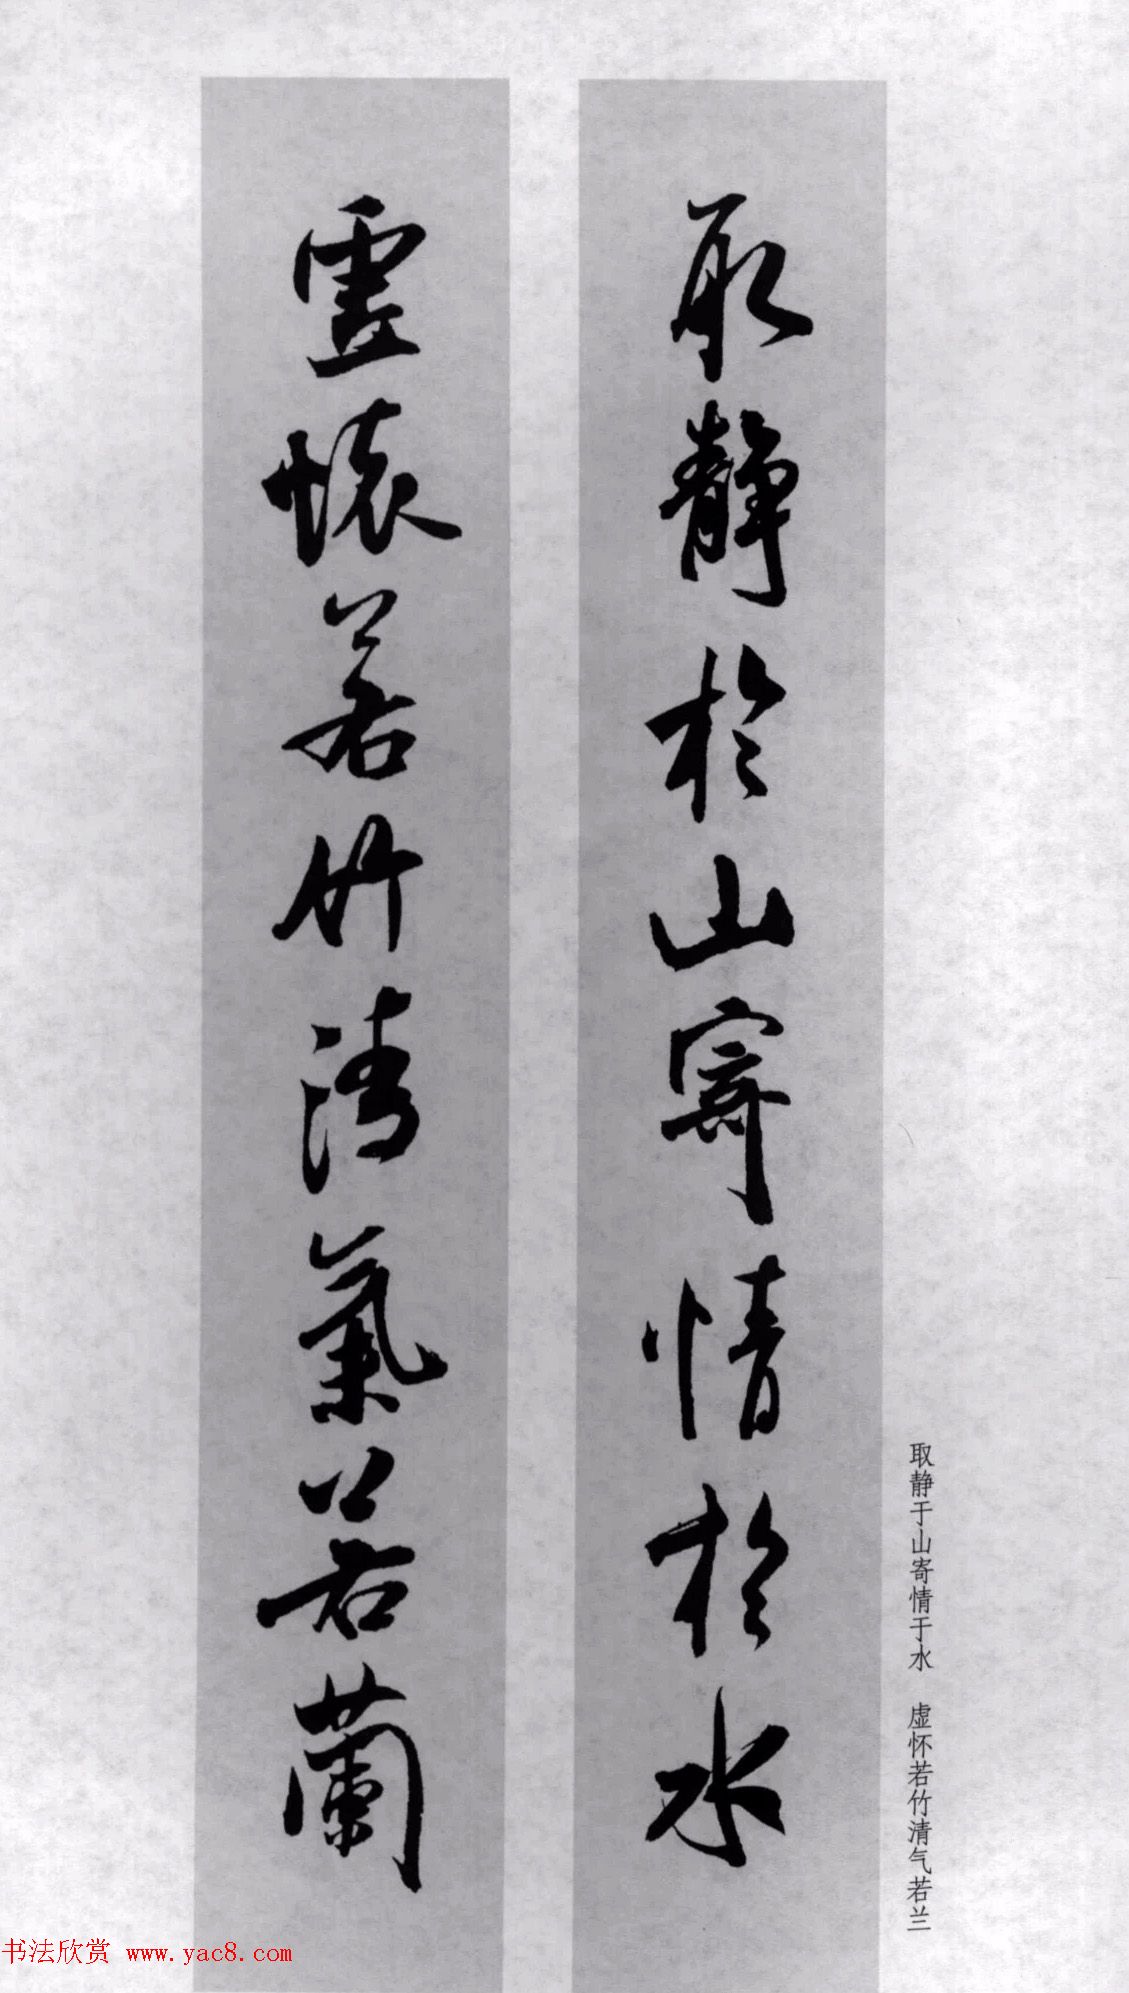 取靜於山寄情於水
虛懷若竹清氣若蘭
取静于山寄情于水　虚怀若竹清气若兰
书法欣赏 www.yac8.com